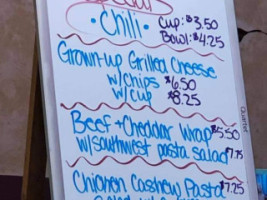 ·Chili· Cup: $3.50
Bowl: $4.25
Grown-up Grilled Cheese
w/chips $6.50
w/cup $8.25
Beef + Cheddar Wrap $5.50
w/southwest pasta salad $7.75
Chicken Cashew Pasta $7.25